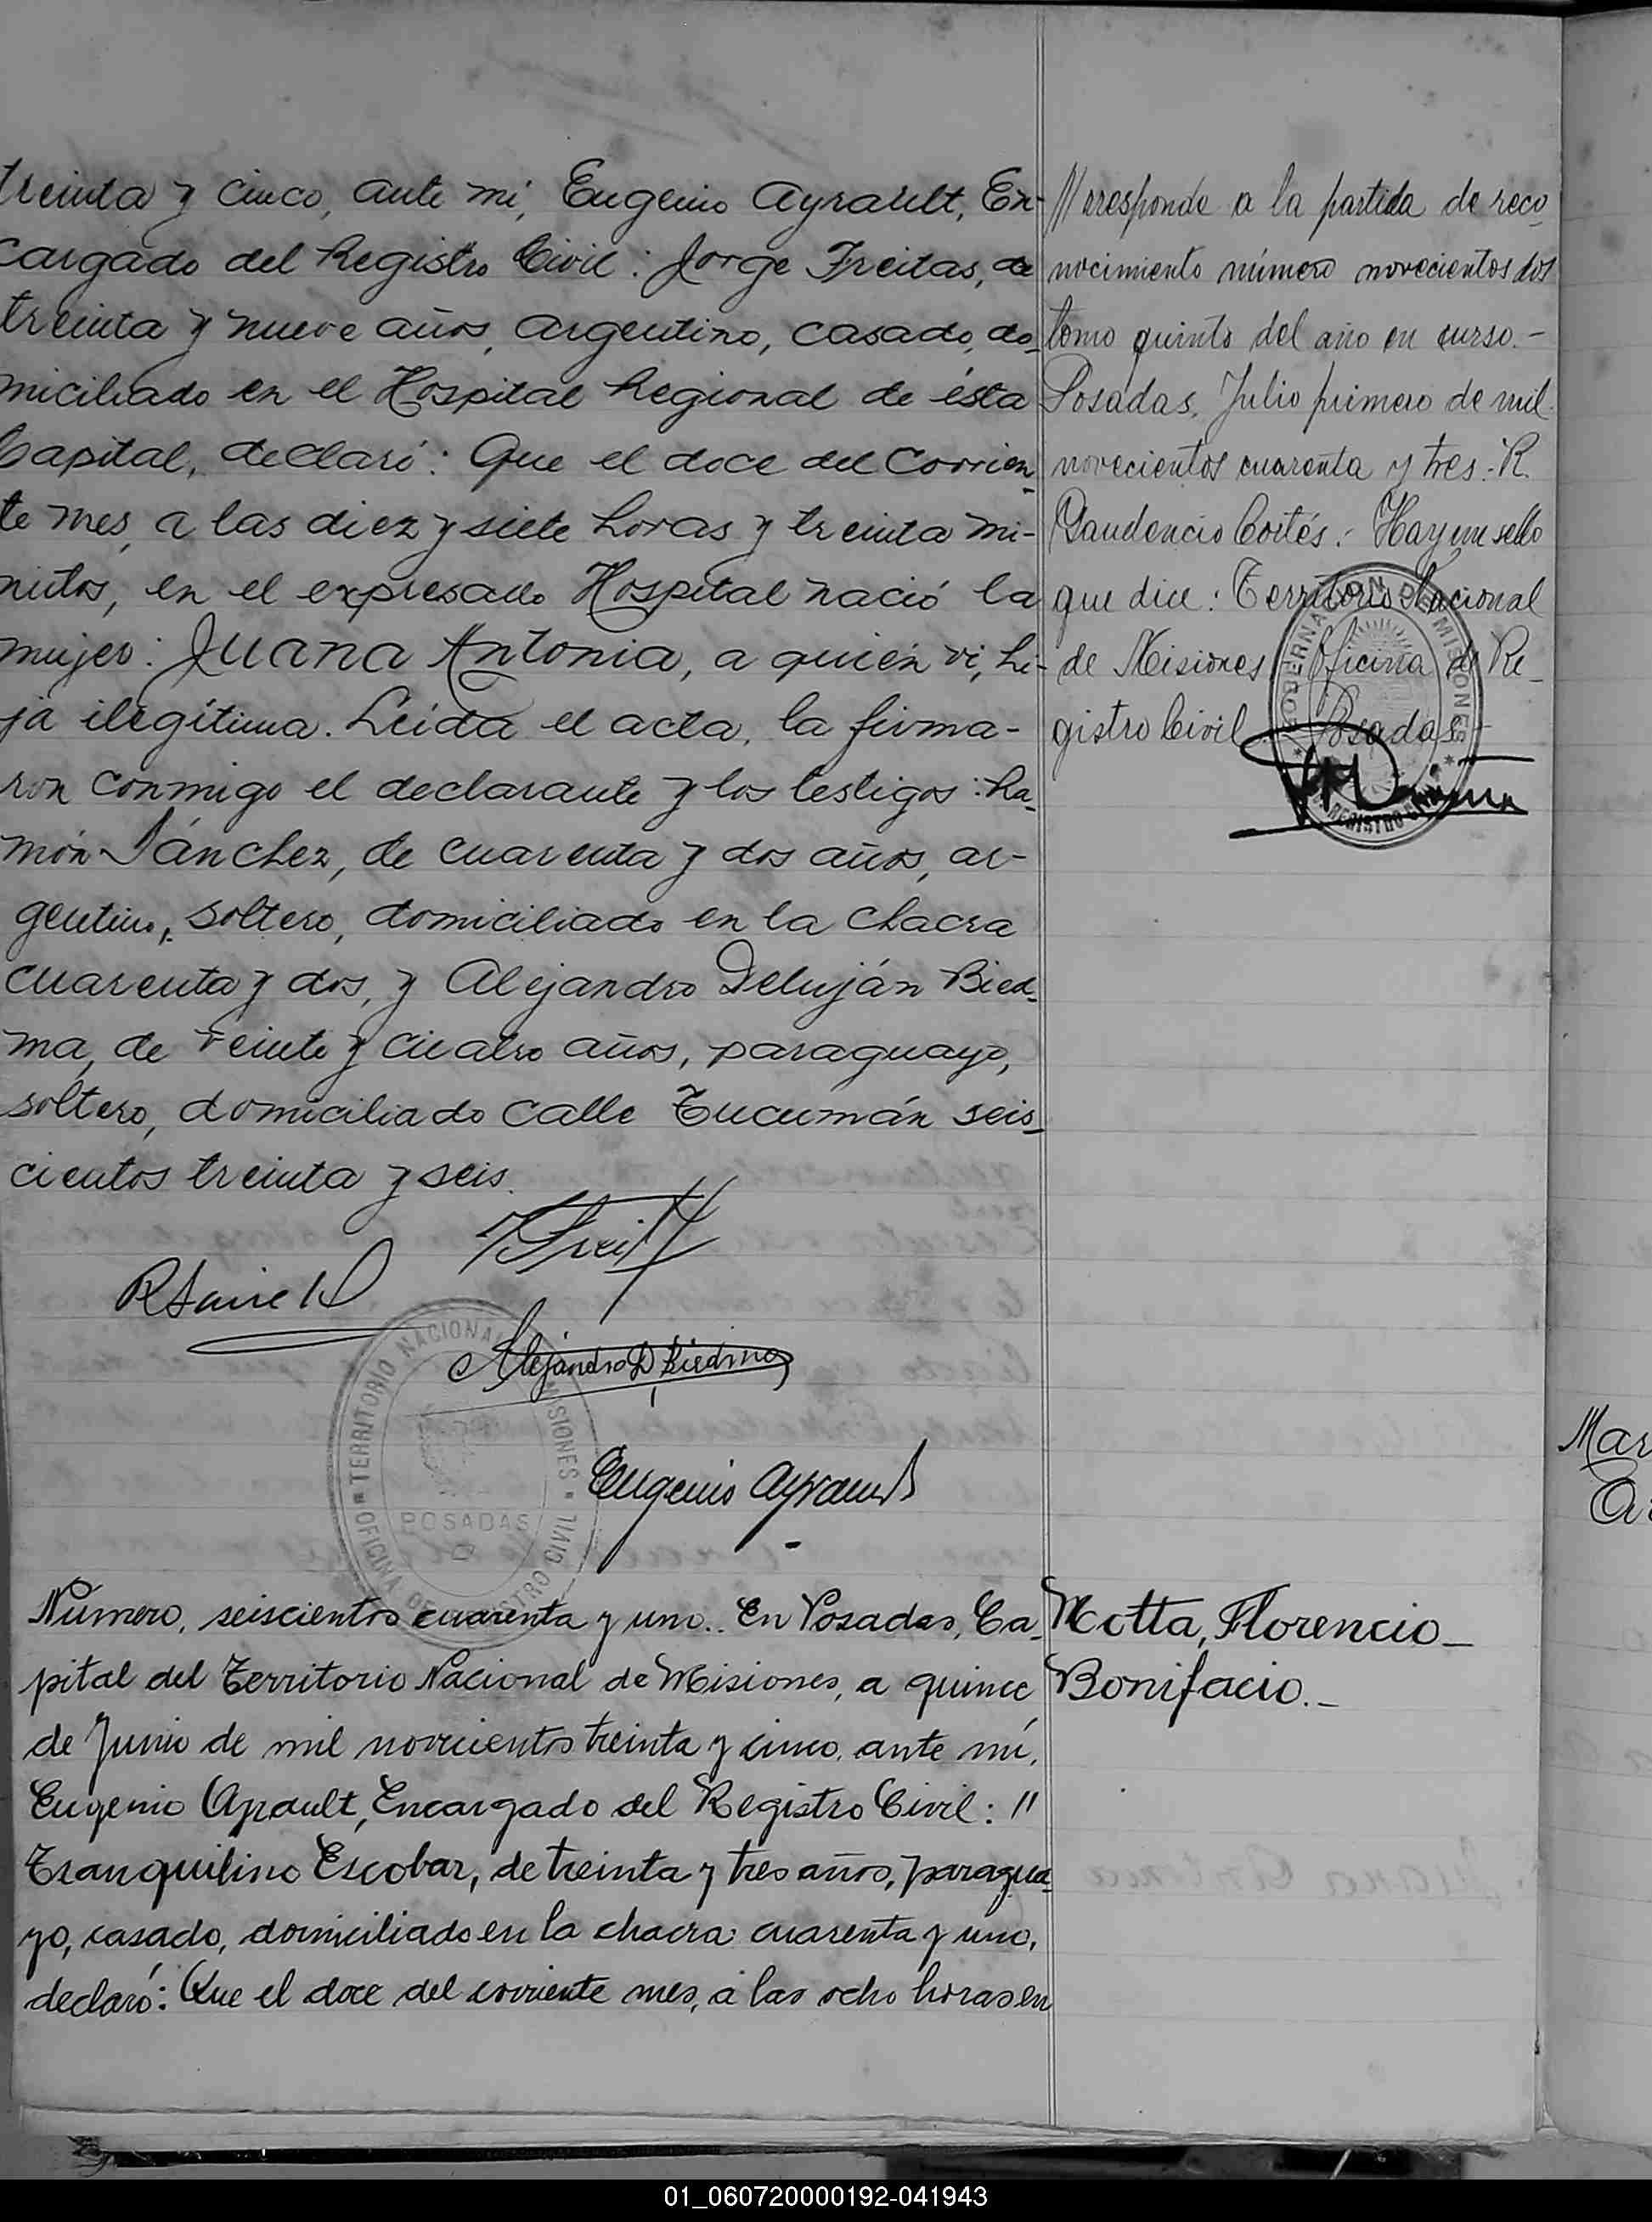 treinta y cinco, ante mi, Eugenio Ayrault, En-
cargado del Registro Civil: Jorge Freitas, de
treinta y nueve años, argentino, casado, do-
miciliado en el Hospital Regional de ésta
Capital, declaró: Que el doce del corrien-
te mes, a las diez y siete horas y treinta mi-
nutos, en el expresado Hospital nació la
mujer: Juana Antonia, a quién ví, hi-
ja ilegítima. Leída el acta, la firma-
ron conmigo el declarante y los testigos: Ra-
món Sánchez, de cuarenta y dos años, ar-
gentino, soltero, domiciliado en la chacra
cuarenta y dos, y Alejandro Deluján Bied-
ma, de veinte y cuatro años, paraguayo,
soltero, domiciliado calle Tucumán seis-
cientos treinta y seis.
Alejandro D. Biedma
Eugenio Ayrault
TERRITORIO NACIONAL MISIONES
OFICINA DE REGISTRO CIVIL
POSADAS
Número, seiscientos cuarenta y uno.. En Posadas, Ca-
pital del Territorio Nacional de Misiones, a quince
de Junio de mil novecientos treinta y cinco, ante mí,
Eugenio Ayrault, Encargado del Registro Civil: //
Tranquilino Escobar, de treinta y tres años, paragua-
yo, casado, domiciliado en la chacra cuarenta y uno,
declaró: Que el doce del corriente mes, a las ocho horas en
///rresponde a la partida de reco-
nocimiento número novecientos dos
tomo quinto del año en curso.-
Posadas, Julio primero de mil
novecientos cuarenta y tres.- R.
Gaudencio Cortés.- Hay un sello
que dice: Territorio Nacional
de Misiones Oficina de Re-
gistro Civil Posadas-
GOBERNACION DE MISIONES
REGISTRO CIVIL
Motta, Florencio-
Bonifacio.-
Mar
01_060720000192-041943